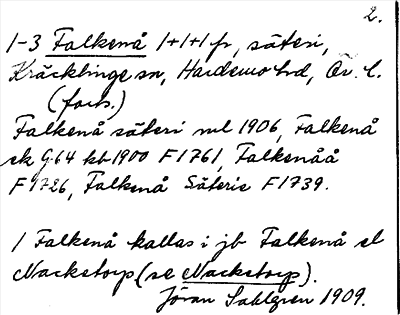 2.
1-3 Falkenå 1+1+1 fr, säteri,
Kräcklinge sn, Hardemo hd, Ör. l.
(forts.)
Falkenå säteri ml 1906, Falkenå
sk G:64 kb 1900 F1761, Falkenåå
F1726, Falkenå Säterie F1739.
1 Falkenå kallas i jb Falkenå el
Nackstorp (se Nackstorp).
Jöran Sahlgren 1909.